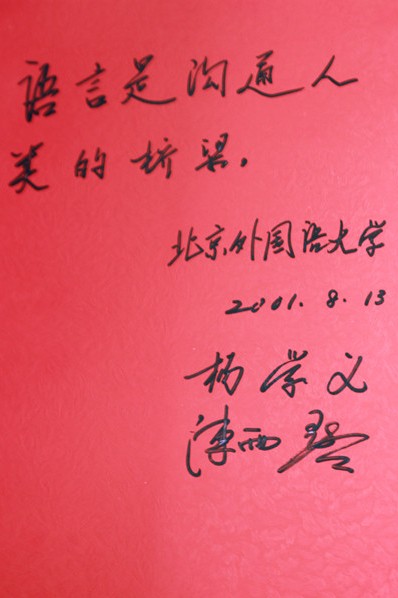 語言是沟通人
类的桥梁。
北京外国语大学
2001.8.13
杨学义
陈雨露